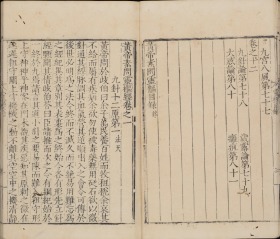 九宫八風第七十七
卷之十二
九針論第七十八　歲露論第七十九
大惑論第八十　癰疽第八十一
黄帝素問靈樞經目録
黄帝素問靈樞經卷之一
九針十二原第一 法天
黄帝問於岐伯曰余子萬民養百姓而收其租税余哀其
不給而屬有疾病余欲勿使被毒藥無用砭石欲以微
針通其經脉調其血氣營其逆順出入之會令可傳於
後世必明爲之法令終而不滅久而不絶易用難忘爲之
經紀異其章别其表裏爲之終始令各有形先立針經
願聞其情岐伯荅曰臣請推而次之令有綱紀始於一
終於九焉請言其道小針之要易陳而難入麤守形
上守神神乎神客在門未覩其疾惡知其原刺之微在
速遲麤守關上守機機之動不離其空空中之機清淨